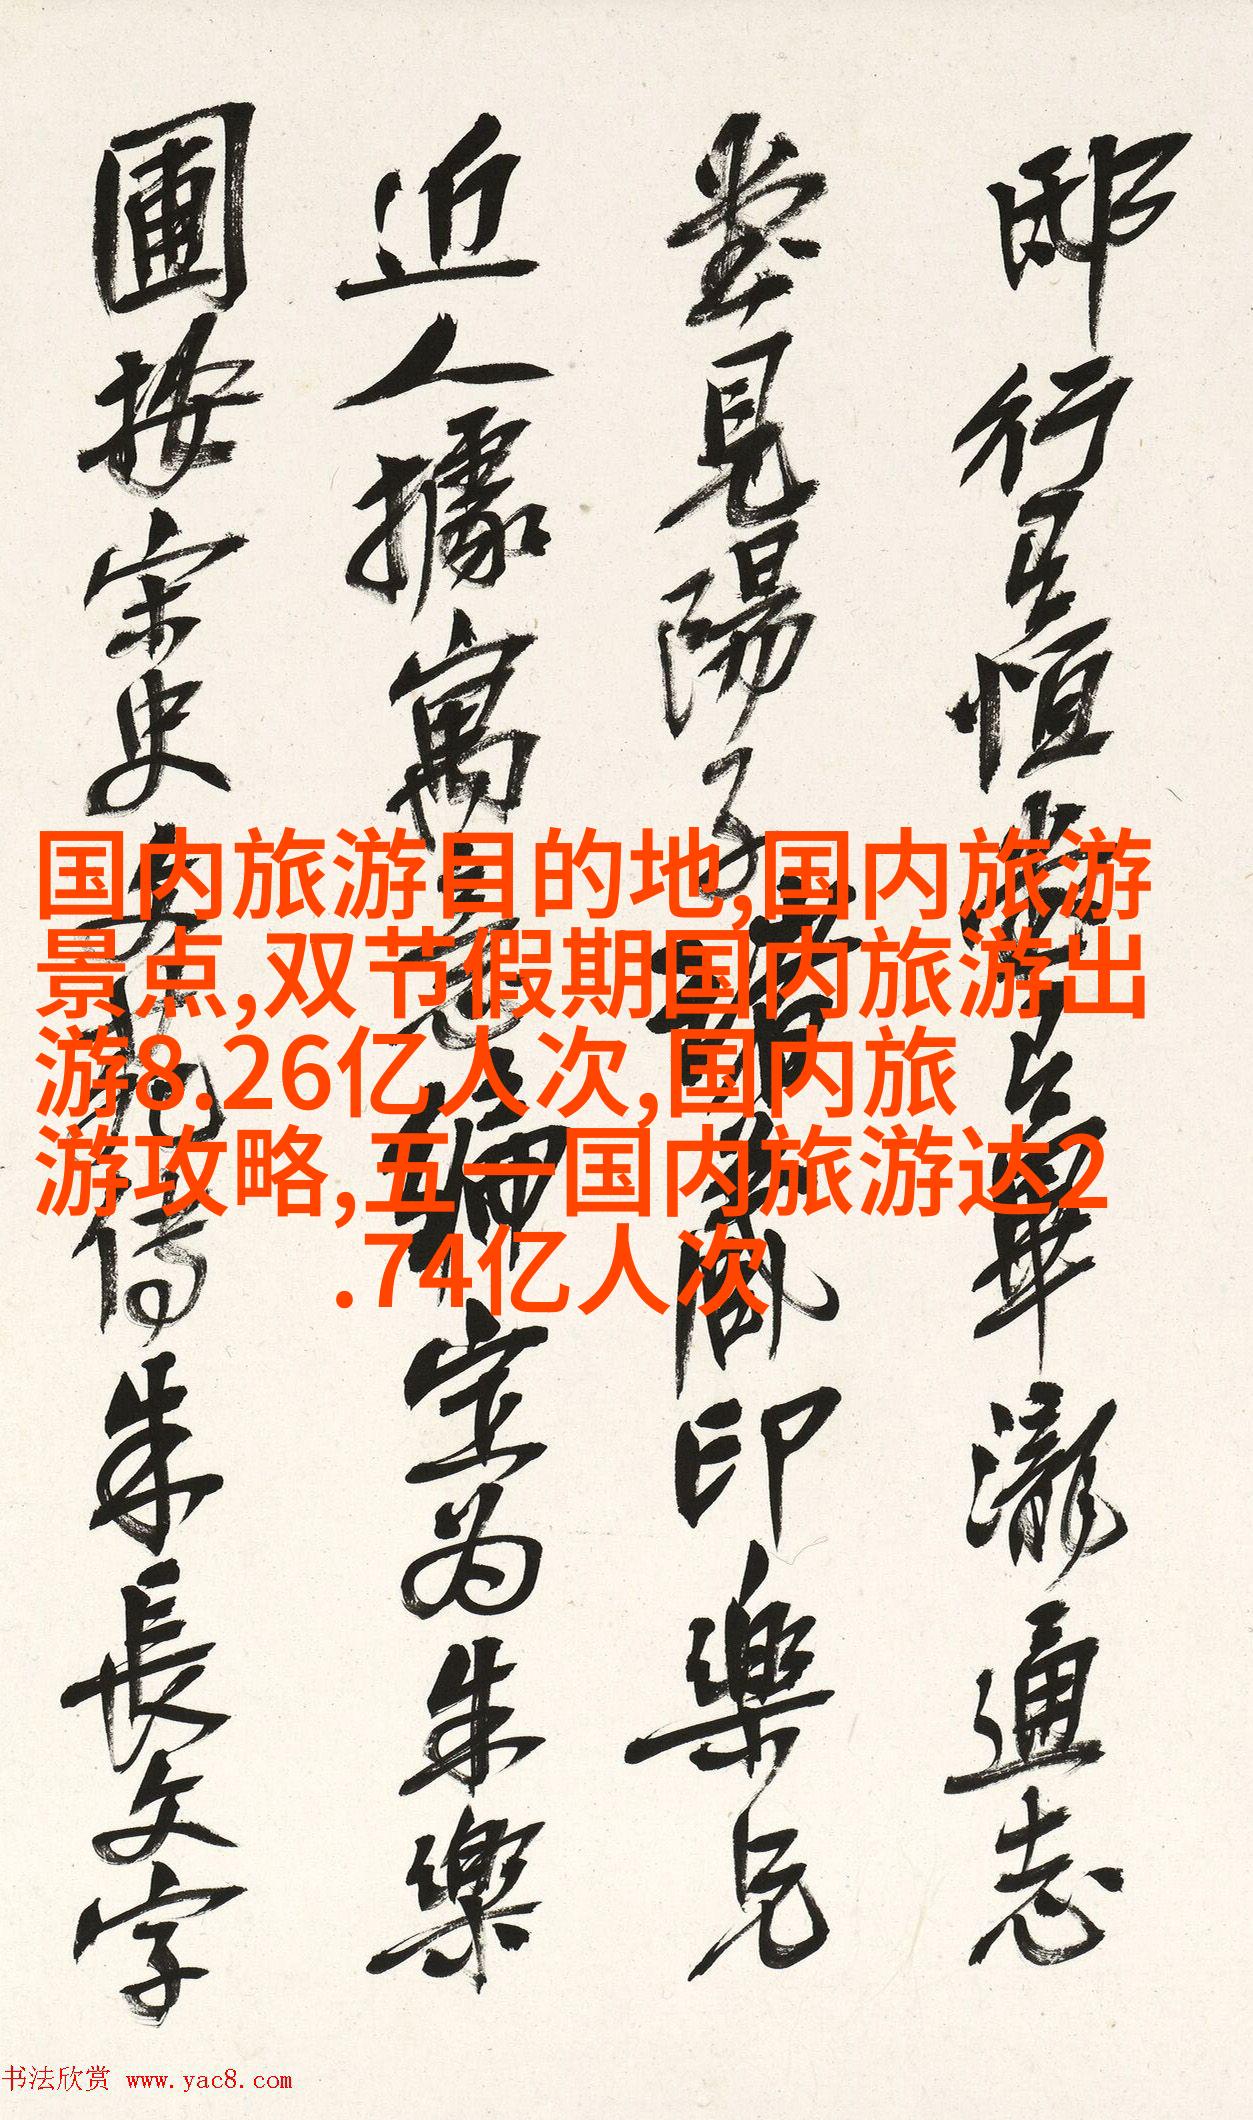 邸行呂恒
瀧通志
堂見陽子
印樂兄
近人據寓意編定為朱樂
圃按宋史文苑傳朱長文字
国内旅游目的地,国内旅游
景点,双节假期国内旅游出
游8.26亿人次,国内旅
游攻略,五一国内旅游达2
.74亿人次
书法欣赏 www.yac8.com